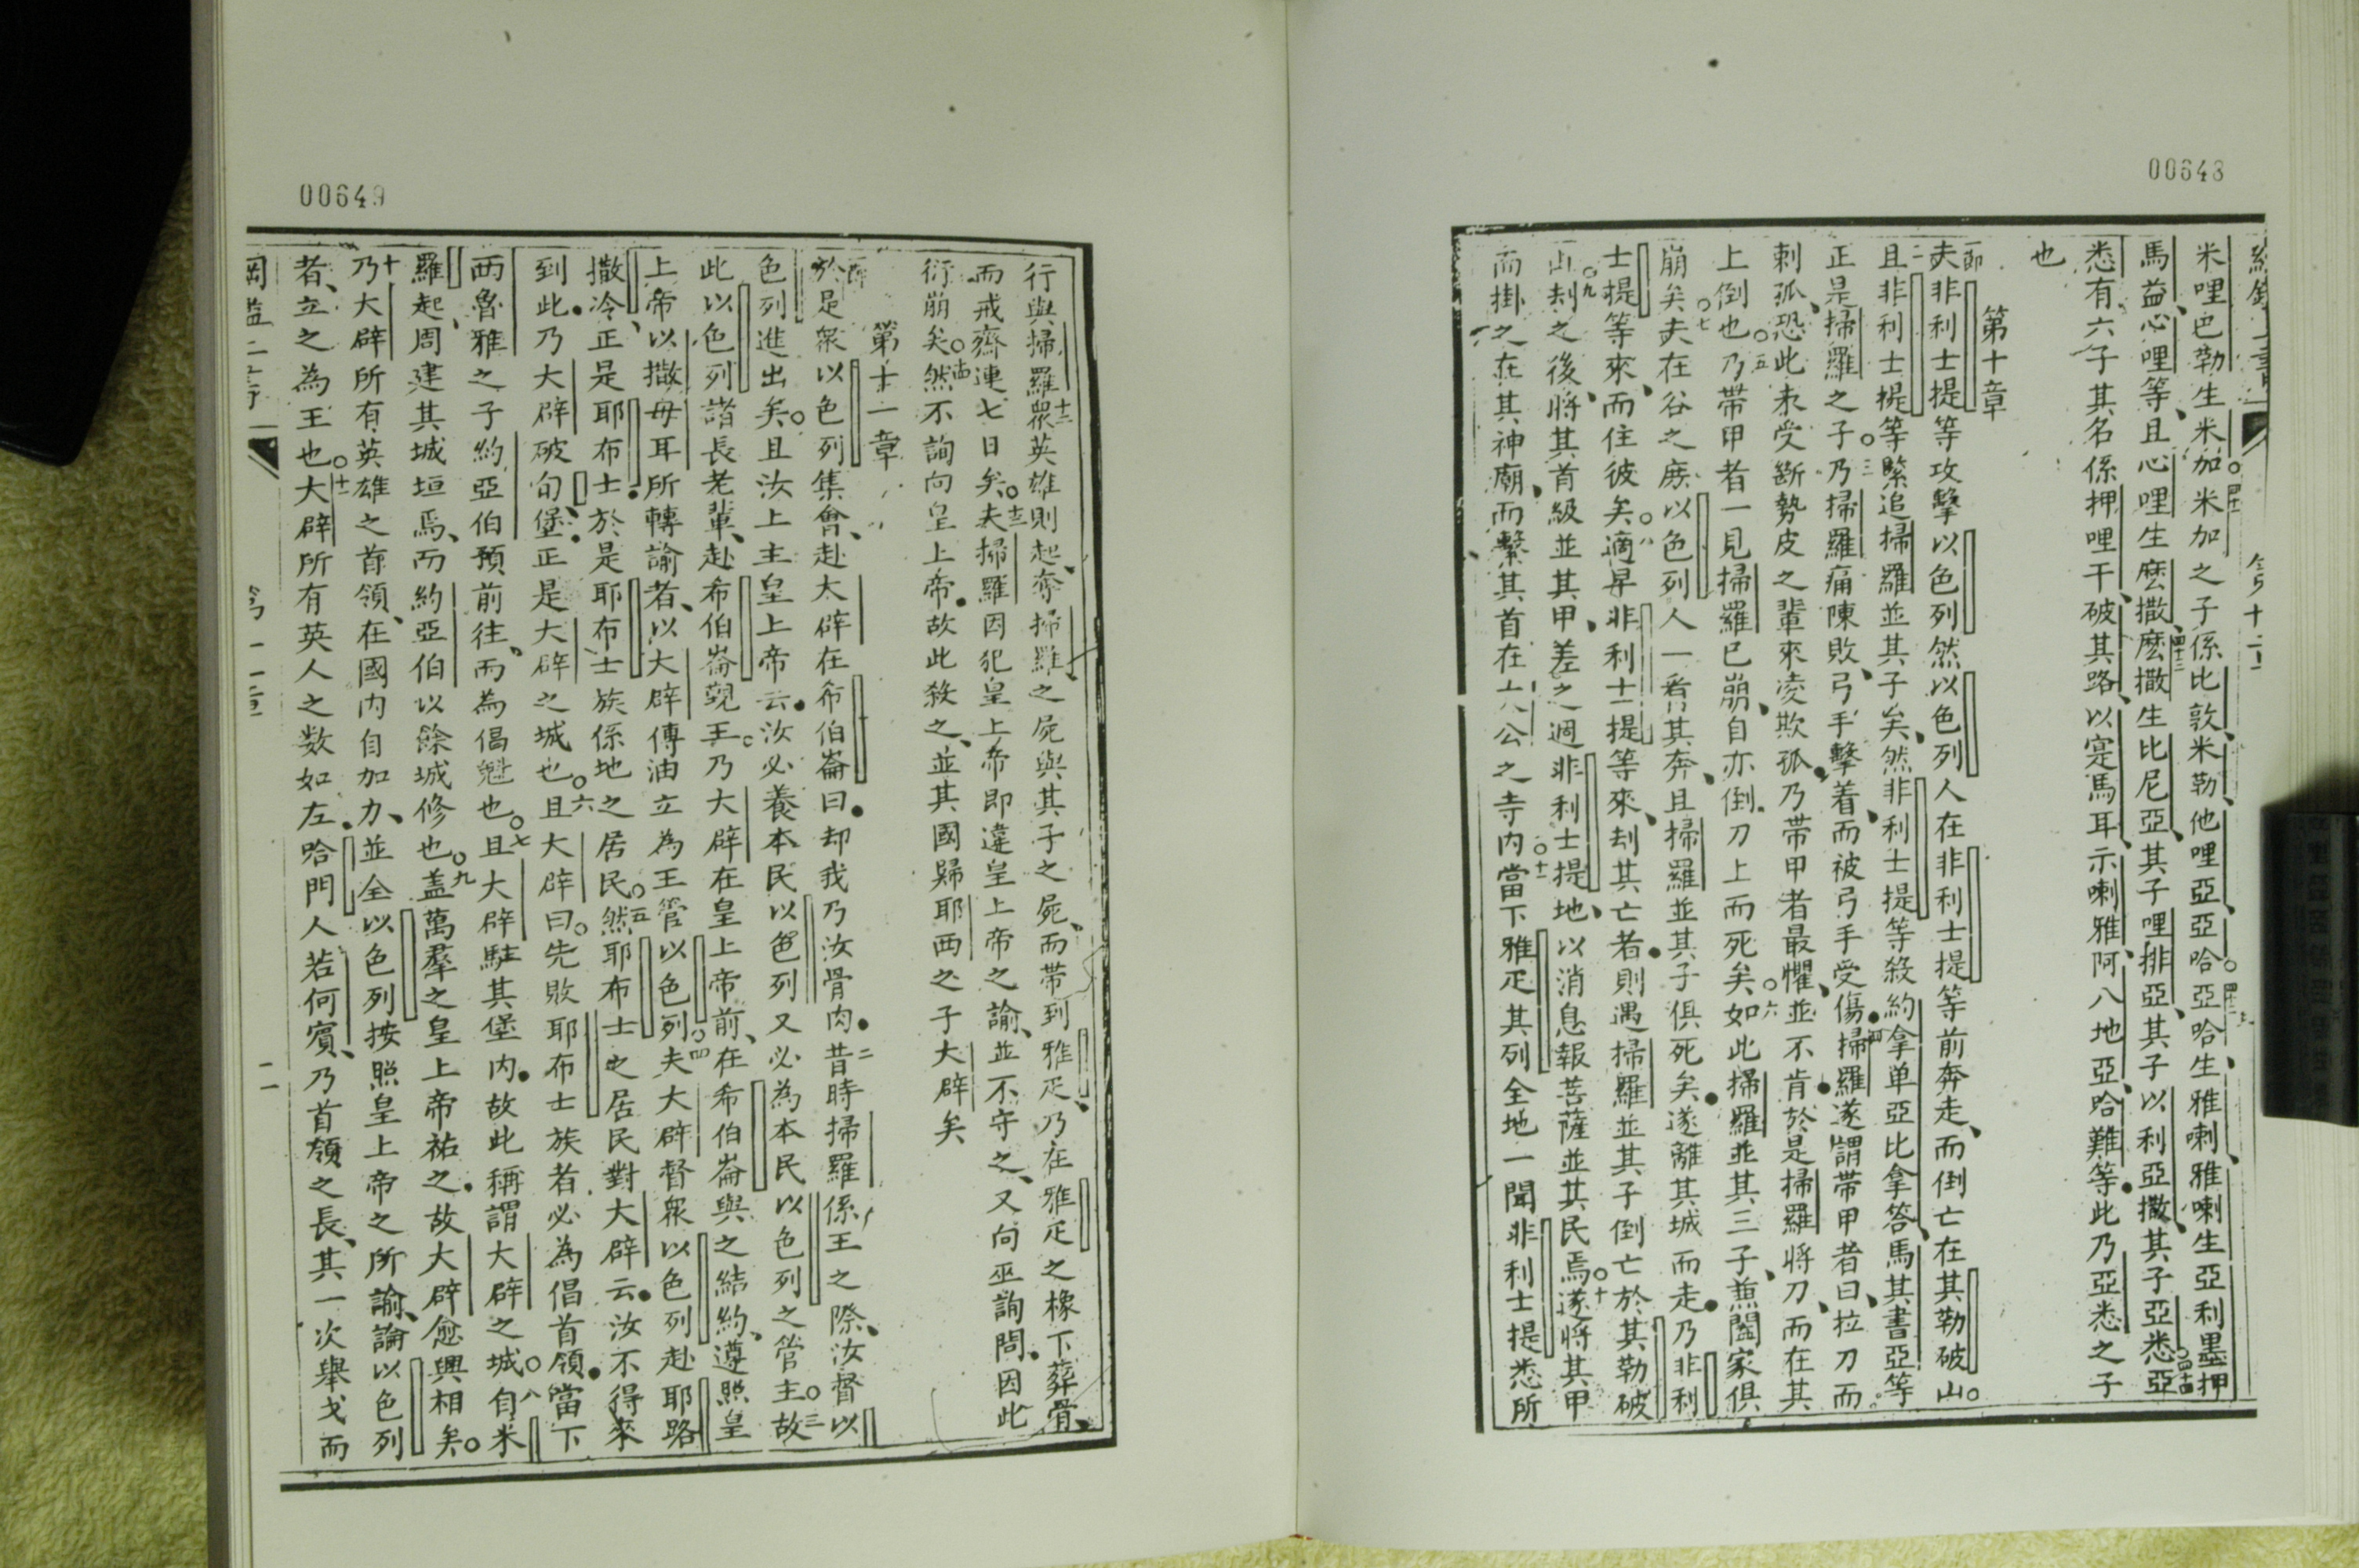 00648
米哩巴勒生米加米加之子係比敦米勒他哩亞亞哈亞哈生雅喇雅喇生亞利墨押
馬益心哩等且心哩生麽撒麽撒生比尼亞其子哩排亞其子以利亞撒其子亞悉亞
悉有六子其名係押哩干破其路以寔馬耳示喇雅阿八地亞哈難等此乃亞悉之子
也
第十章
夫非利士提等攻擊以色列然以色列人在非利士提等前奔走而倒亡在其勒破山
二且非利士提等緊追掃羅並其子矣然非利士提等殺約拿单亞比拿答馬其書亞等
正是掃羅之子三乃掃羅痛陳敗弓手擊着而被弓手受傷四掃羅遂謂帶甲者曰拉刀而
刺孤恐此未受斷勢皮之輩來凌欺孤乃帶甲者最懼並不肯於是掃羅將刀而在其
上倒也五乃帶甲者一見掃羅已崩自亦倒刀上而死矣六如此掃羅並其三子兼闔家俱
崩矣七夫在谷之庶以色列人一看其奔且掃羅並其子俱死矣遂離其城而走乃非利
士提等來而住彼矣八適早非利士提等來刦其亡者則遇掃羅並其子倒亡於其勒破
山九刦之後將其首級並其甲差之週非利士提地以消息報菩薩並其民焉十遂將其甲
而掛之在其神廟而繫其首在大公之寺内十一當下雅疋其列全地一聞非利士提悉所
00649
行與掃羅十二衆英雄則起奪掃羅之屍與其子之屍而帶到雅疋乃在雅疋之橡下葬骨
而戒齋連七日矣十三夫掃羅因犯皇上帝即違皇上帝之諭並不守之又向巫詢問因此
衍崩矣十四然不詢向皇上帝故此殺之並其國歸耶西之子大辟矣
第十一章
於是衆以色列集會赴大辟在希伯崙曰却我乃汝骨肉二昔時掃羅係王之際汝督以
色列進出矣且汝上主皇上帝云汝必養本民以色列又必為本民以色列之管主三故
此以色列諸長老輩赴希伯崙覲王乃大辟在皇上帝前在希伯崙與之結約遵照皇
上帝以撒母耳所轉諭者以大辟傅油立為王管以色列四夫大辟督衆以色列赴耶路
撒冷正是耶布士於是耶布士族係地之居民五然耶布士之居民對大辟云汝不得來
到此乃大辟破旬堡正是大辟之城也六且大辟曰先敗耶布士族者必為倡首領當下
西魯雅之子約亞伯預前往而為倡魁也七且大辟駐其堡内故此稱謂大辟之城八自米
羅起周建其城垣焉而約亞伯以餘城修也九盖萬羣之皇上帝祐之故大辟愈興相矣
十乃大辟所有英雄之首領在國内自加力並全以色列按照皇上帝之所諭論以色列
者立之為王也十一大辟所有英人之数如左哈門人若何賓乃首領之長其一次舉戈而